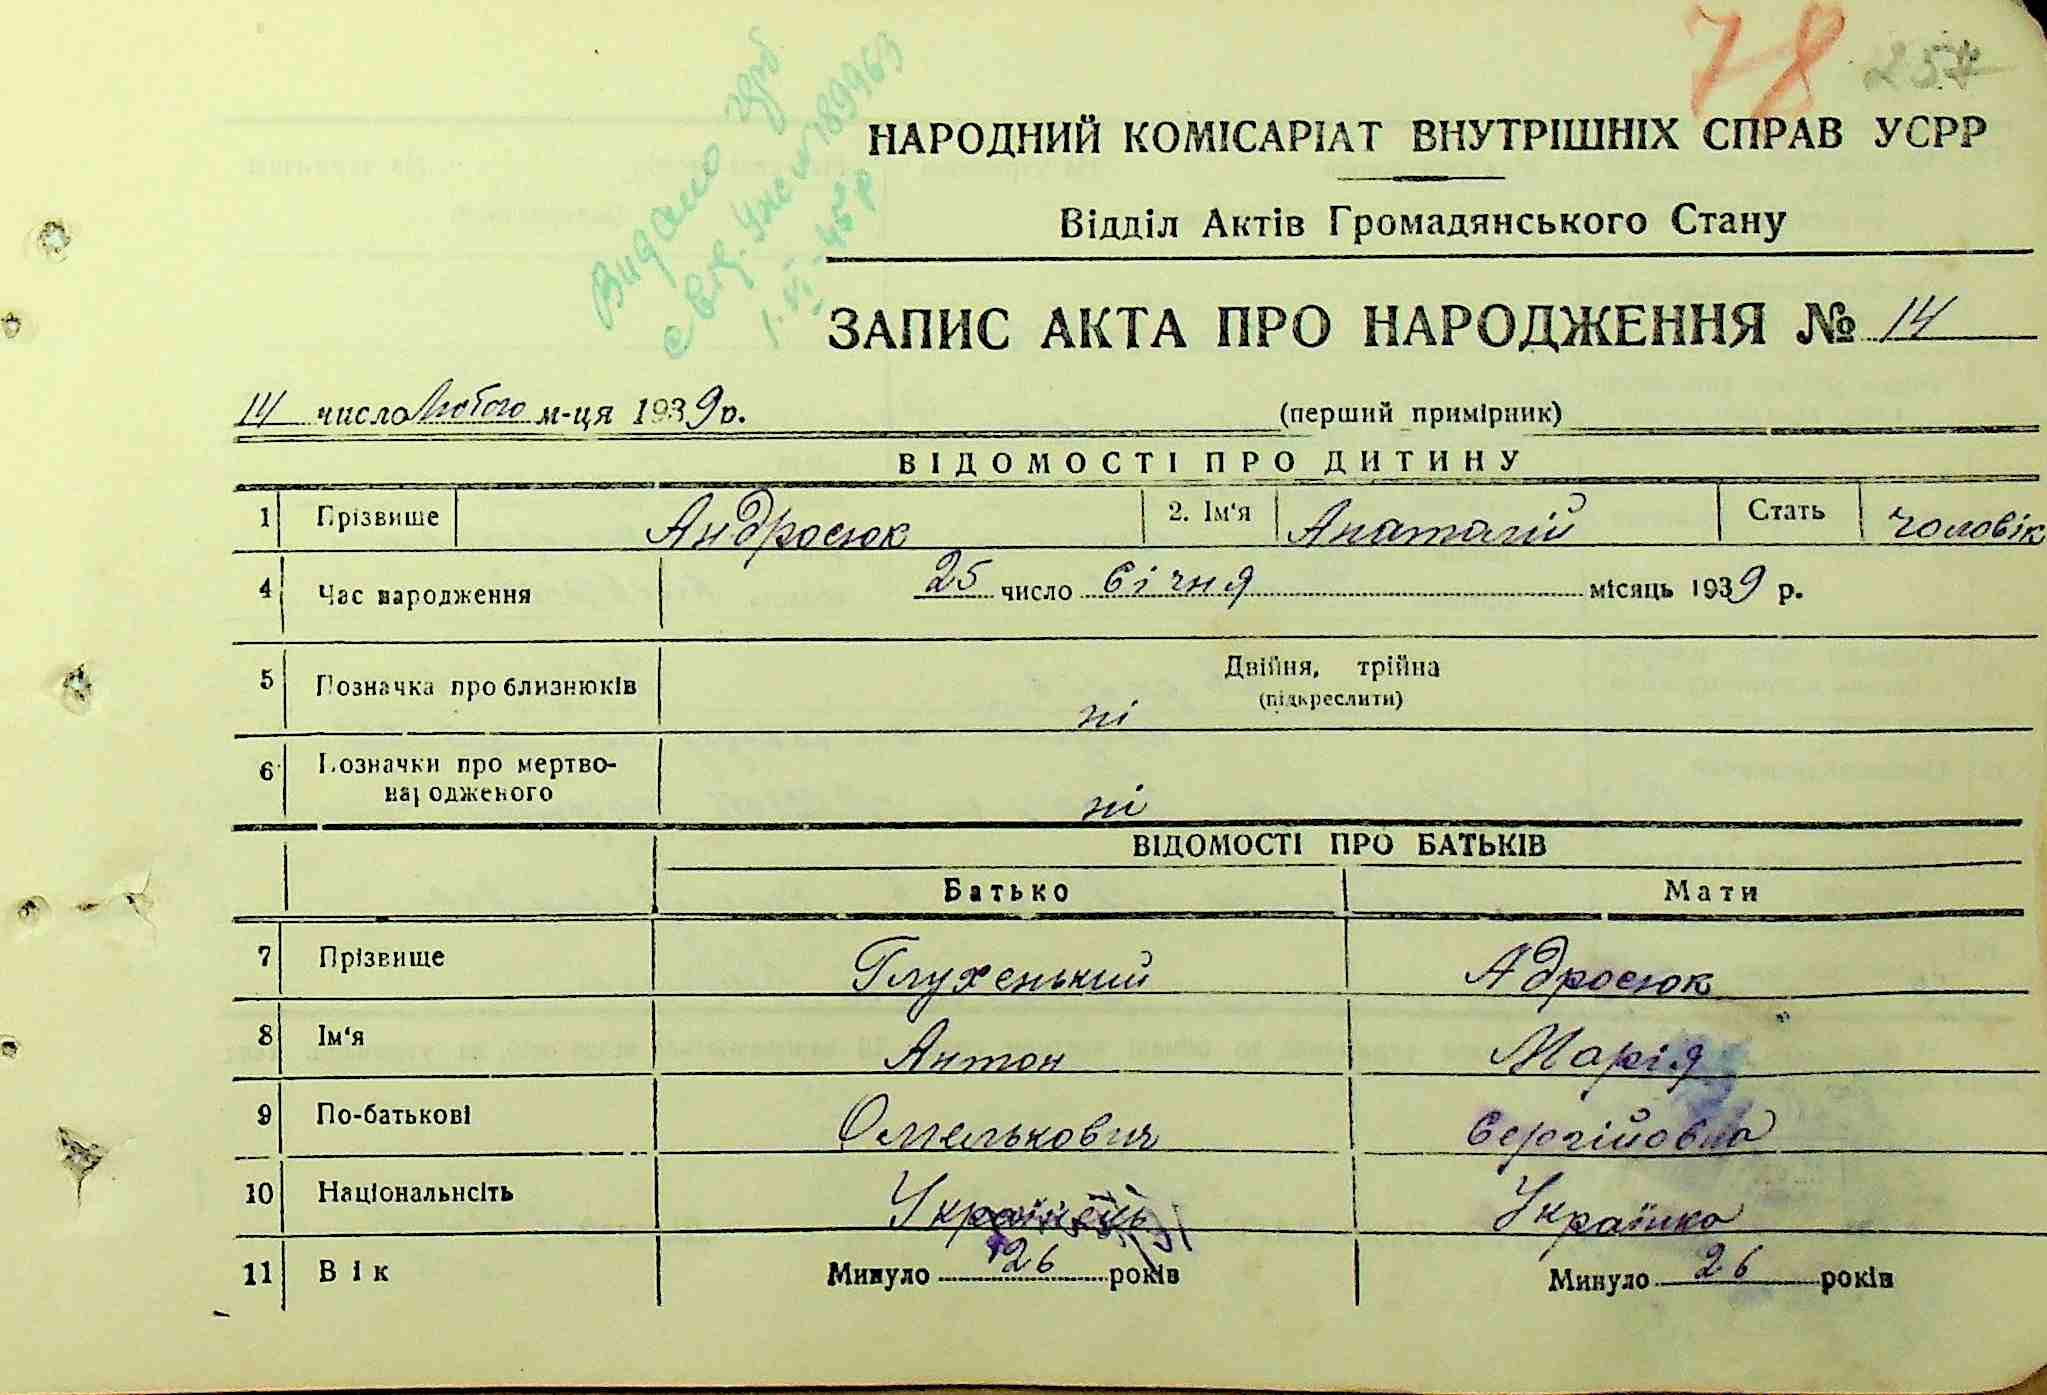 78 257
Видано герб
свід. Ужс № 189963
1.VI-45 р
НАРОДНИЙ КОМІСАРІАТ ВНУТРІШНІХ СПРАВ УСРР
Відділ Актів Громадянського Стану
ЗАПИС АКТА ПРО НАРОДЖЕННЯ № 14
14 число Лютого м-ця 1939 р. (перший примірник)
ВІДОМОСТІ ПРО ДИТИНУ
1 Прізвище Андросюк 2. Ім'я Анаталій Стать чоловік
4 Час народження 25 число Січня місяць 1939 р.
5 Позначка про близнюків Двійня, трійна
(підкреслити)
ні
6 Позначки про мертво-
народженого ні
ВІДОМОСТІ ПРО БАТЬКІВ
Батько Мати
7 Прізвище Глухенький Адросюк
8 Ім'я Антон Марія
9 По-батькові Омелькович Сергійовна
10 Національнсіть Українець Українка
11 Вік Минуло 26 років Минуло 26 років